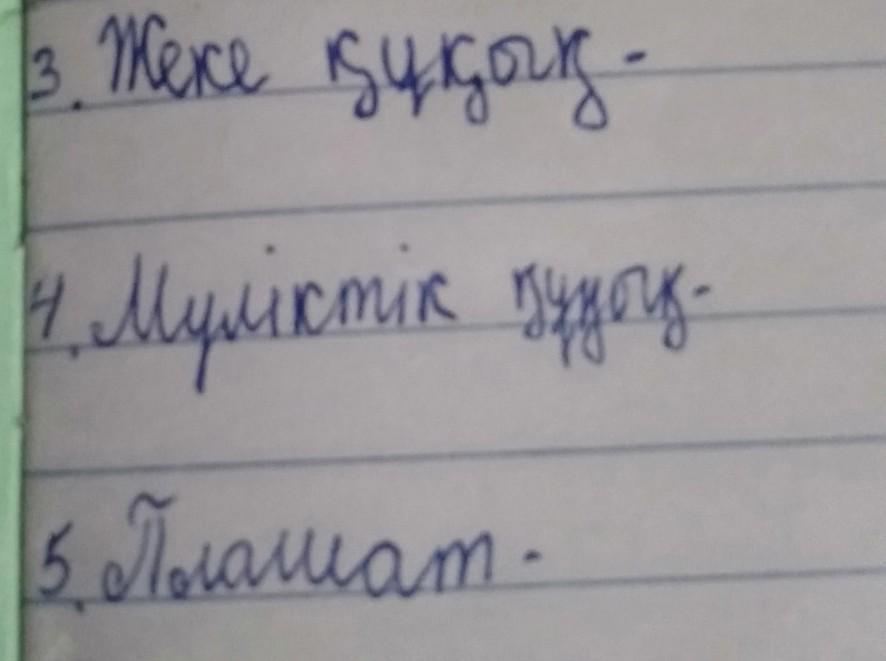 3. Жеке құқық -
4. Мүліктік құқық -
5. Плагиат -